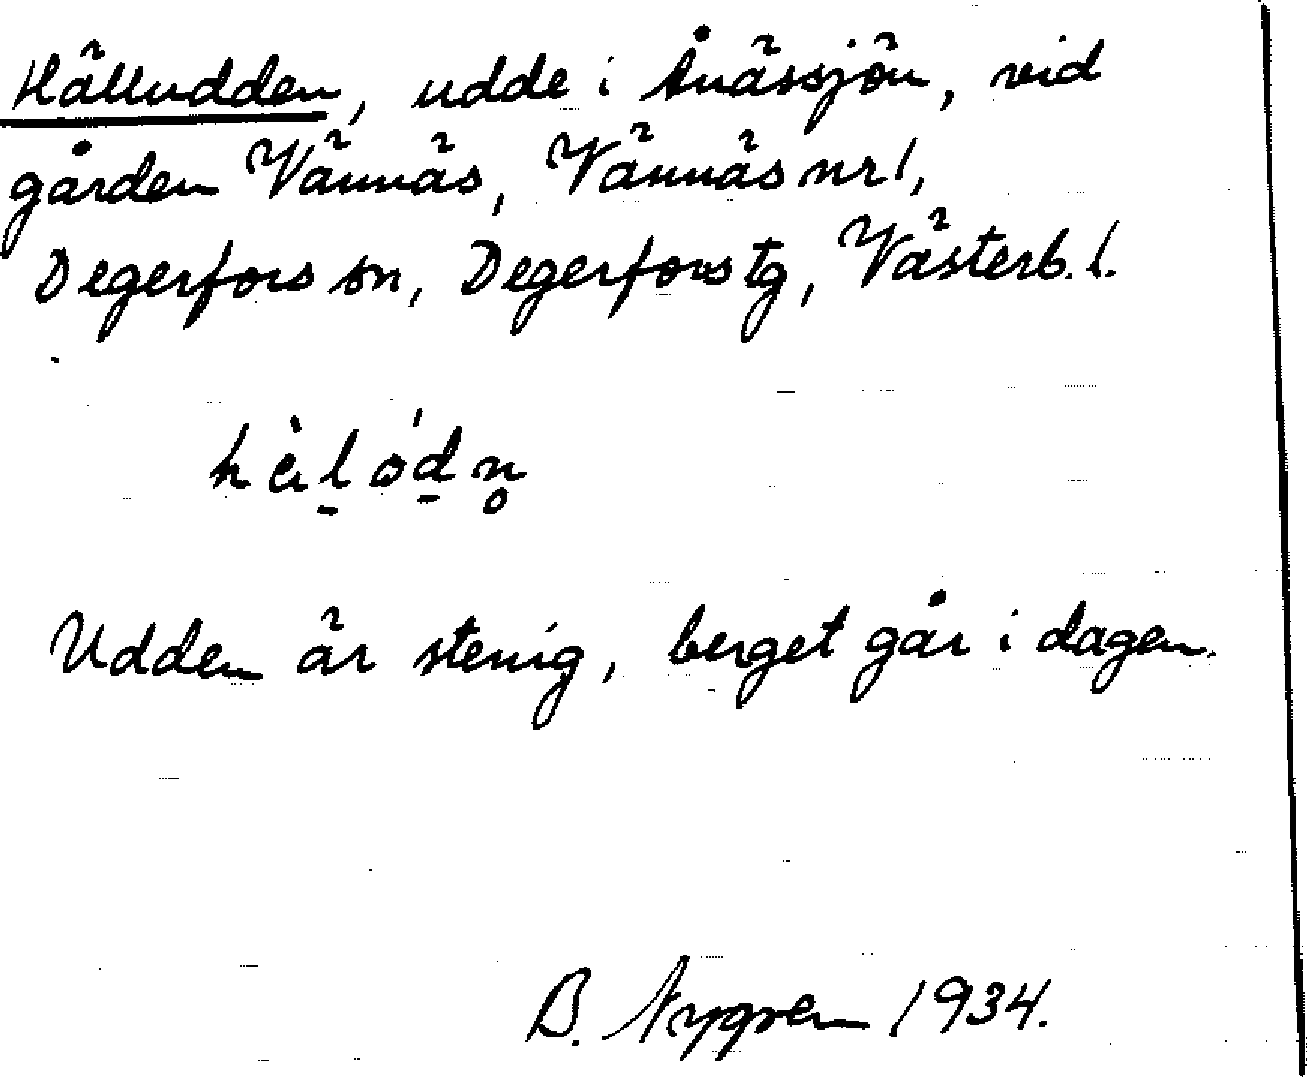 Hälludden, udde i Ånässjön, vid
gården Vännäs, Vännäs nr 1,
Degerfors sn, Degerfors tg, Västerb. l.
hὰl̠ód̠n̥
Udden är stenig, berget går i dagen.
B. Nygren 1934.